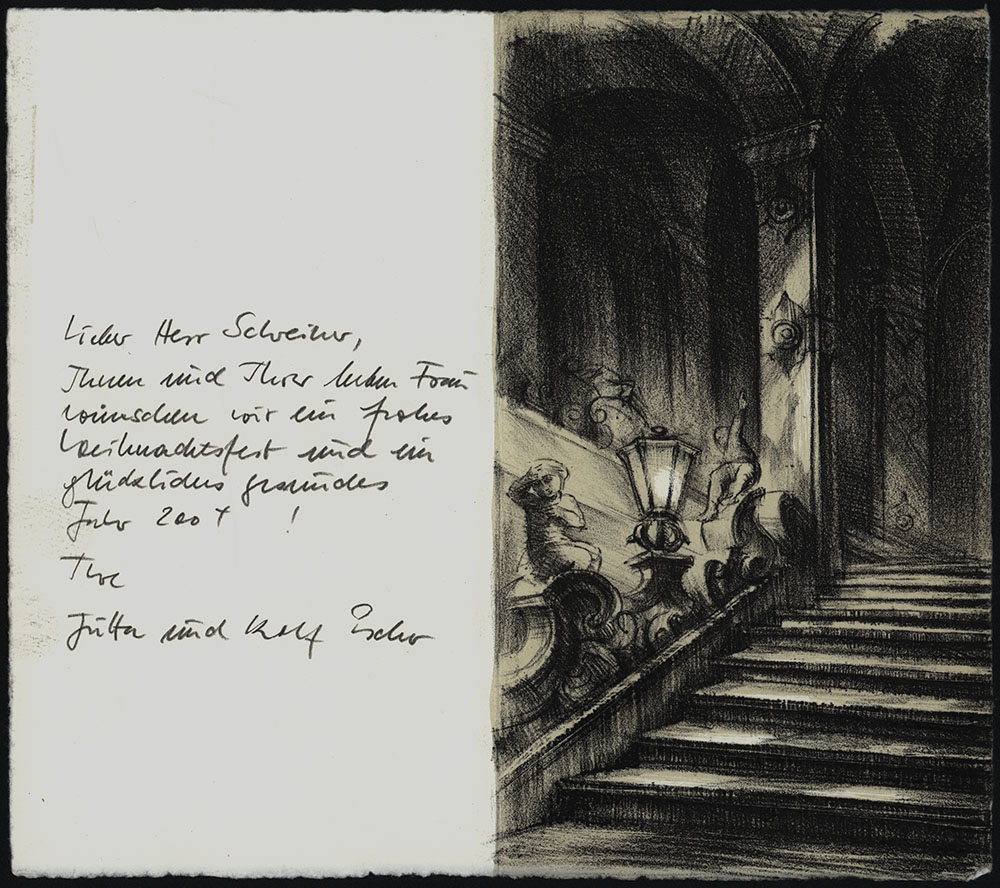 Lieber Herr Schreiber,
Ihnen und Ihrer lieben Frau
wünschen wir ein frohes
Weihnachtsfest und ein
glückliches gesundes
Jahr 2007 !
Ihre
Jutta und Rolf